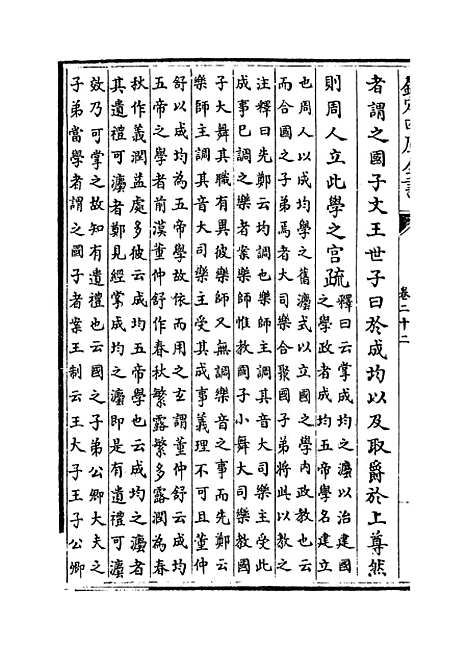 欽定四庫全書
卷二十二
者謂之國子文王世子曰於成均以及取爵於上尊然
則周人立此學之宮疏釋曰云掌成均之灋以治建國
之學政者成均五帝學名建立
也周人以成均學之舊灋式以立國之學内政教也云
而合國之子弟焉者大司樂合聚國子弟將此以教之
注釋曰先鄭云均調也樂師主調其音大司樂主受此
成事已調之樂者案樂師惟教國子小舞大司樂教國
子大舞其職有異彼樂師又無調樂音之事而先鄭云
樂師主調其音大司樂主受其成事義理不可且董仲
舒以成均為五帝學故依而用之玄謂董仲舒云成均
五帝之學者前漢董仲舒作春秋繁露繁多露潤為春
秋作義潤益處多彼云成均五帝學也云成均之灋者
其遺禮可灋者鄭見經掌成均之灋即是有遺禮可灋
效乃可掌之故知有遺禮也云國之子弟公卿大夫之
子弟當學者謂之國子者案王制云王大子王子公卿